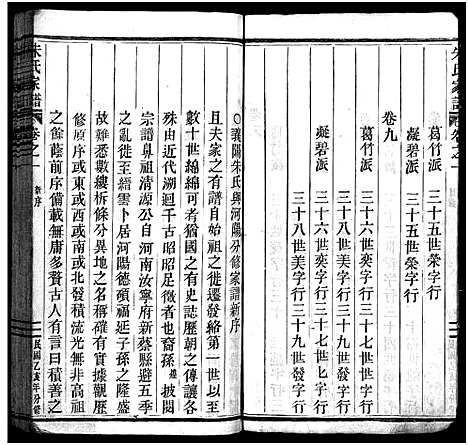 朱氏家譜
卷之一
葛竹派
三十五世榮字行
凝碧派
三十五世榮字行
卷九
葛竹派
三十六世奕字行 三十七世弋字行
三十八世美字行 三十九世發字行
凝碧派
三十六世奕字行 三十七世弋字行
三十八世美字行 三十九世發字行
○義陽朱氏與河陽分修家譜新序
且夫家之有譜自始祖之徙遷發絡第一世以至
數十世綿綿可考者猶國之有史誌歷朝之傳讓各
殊由近代溯迴千古昭昭足徵者也裔孫 披閱
宗譜鼻祖清源公自河南汝寧府新蔡縣避五季
之亂徙至縉雲卜居河陽德碩福延子孫之隆盛
故難悉數縷柝條分異地之名萬皆有實據觀歷
修原序或東或西或近或遠雖散處靡常無非高祖
之餘蔭前序備載無庸多贅古人有言曰積善之
朱氏家譜
卷之一
新序
民國乙亥年分修